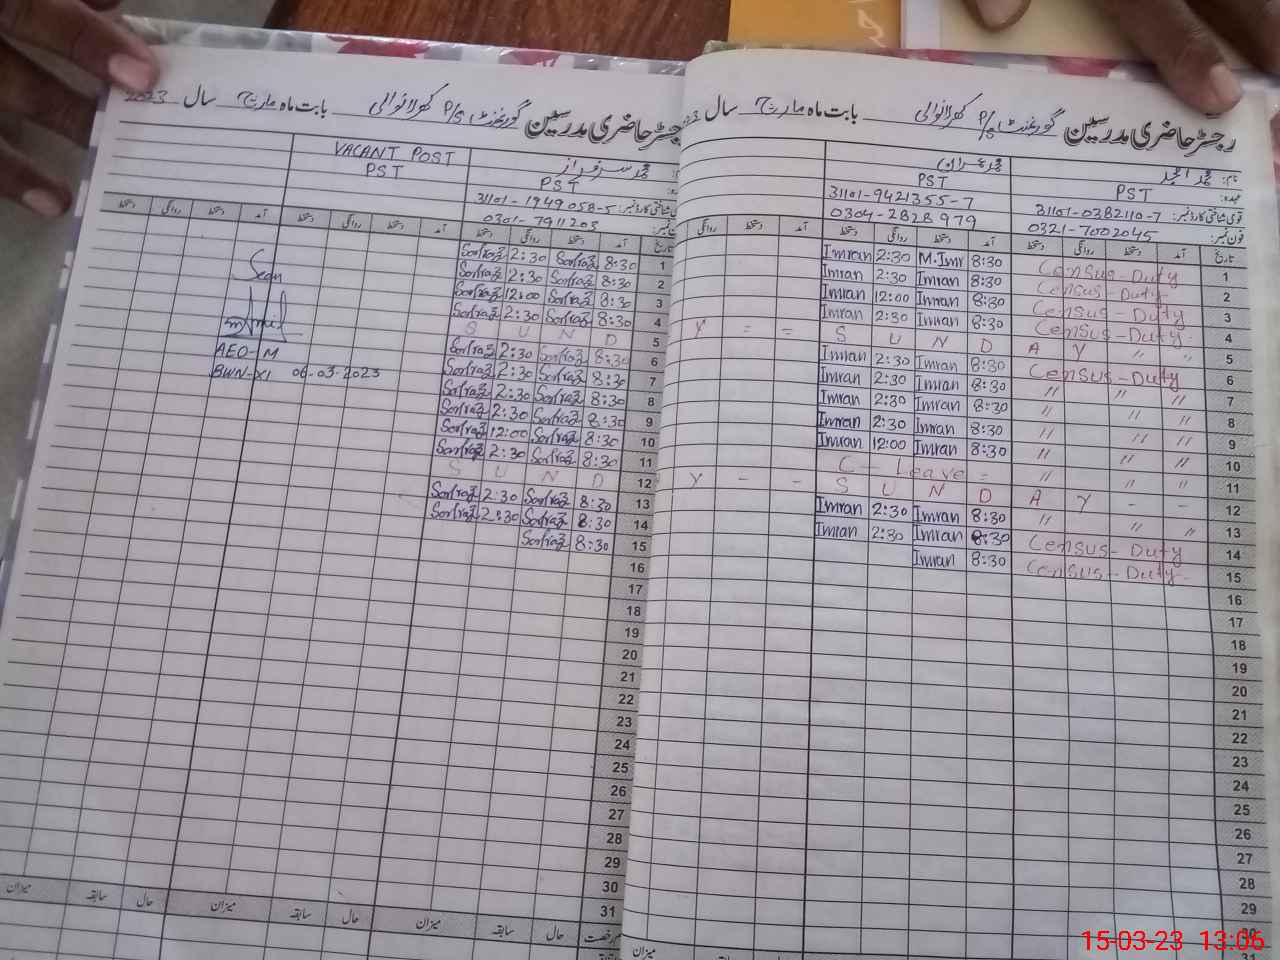 رجسٹر حاضری مدرسین گورنمنٹ P/S کھرلانوالی بابت ماہ مارچ سال
نام: محمد امجد محمد عمران
عہدہ: PST PST
قومی شناختی کارڈ نمبر: 31101-0382110-7 31101-9421355-7
فون نمبر: 0321-7002045 0304-2828979
تاریخ آمد دستخط روانگی دستخط آمد دستخط روانگی دستخط آمد دستخط روانگی
1 Census-Duty 8:30 M.Imr 2:30 Imran
2 Census-Duty 8:30 Imran 2:30 Imran
3 Census-Duty 8:30 Imran 12:00 Imran
4 Census-Duty 8:30 Imran 2:30 Imran
5 " " Y A D N U S = = Y
6 Census-Duty 8:30 Imran 2:30 Imran
7 " " " 8:30 Imran 2:30 Imran
8 " " " 8:30 Imran 2:30 Imran
9 " " " 8:30 Imran 2:30 Imran
10 " " " 8:30 Imran 12:00 Imran
11 " " " C - Leave =
12 - - Y A D N U S - - Y
13 " " " 8:30 Imran 2:30 Imran
14 Census-Duty 8:30 Imran 2:30 Imran
15 Census-Duty 8:30 Imran
16
17
18
19
20
21
22
23
24
25
26
27
28
29
30
31
میزان حال سابقہ میزان
رجسٹر حاضری مدرسین گورنمنٹ P/S کھرلانوالی بابت ماہ مارچ سال 2023
محمد سرفراز VACANT POST
PST PST
31101-1949058-5
0301-7911205
تاریخ آمد دستخط روانگی دستخط آمد دستخط روانگی دستخط آمد دستخط روانگی دستخط
1 8:30 Sarfraz 2:30 Sarfraz
2 8:30 Sarfraz 2:30 Sarfraz
3 8:30 Sarfraz 12:00 Sarfraz
4 8:30 Sarfraz 2:30 Sarfraz
5 D N U S
6 8:30 Sarfraz 2:30 Sarfraz
7 8:30 Sarfraz 2:30 Sarfraz
8 8:30 Sarfraz 2:30 Sarfraz
9 8:30 Sarfraz 2:30 Sarfraz
10 8:30 Sarfraz 12:00 Sarfraz
11 8:30 Sarfraz 2:30 Sarfraz
12 D N U S
13 8:30 Sarfraz 2:30 Sarfraz
14 8:30 Sarfraz 2:30 Sarfraz
15 8:30 Sarfraz
16
17
18
19
20
21
22
23
24
25
26
27
28
29
30
31
Seen
AEO-M
BWN-XI 06-03-2023
حال سابقہ میزان حال سابقہ میزان حال سابقہ میزان
15-03-23 13:06